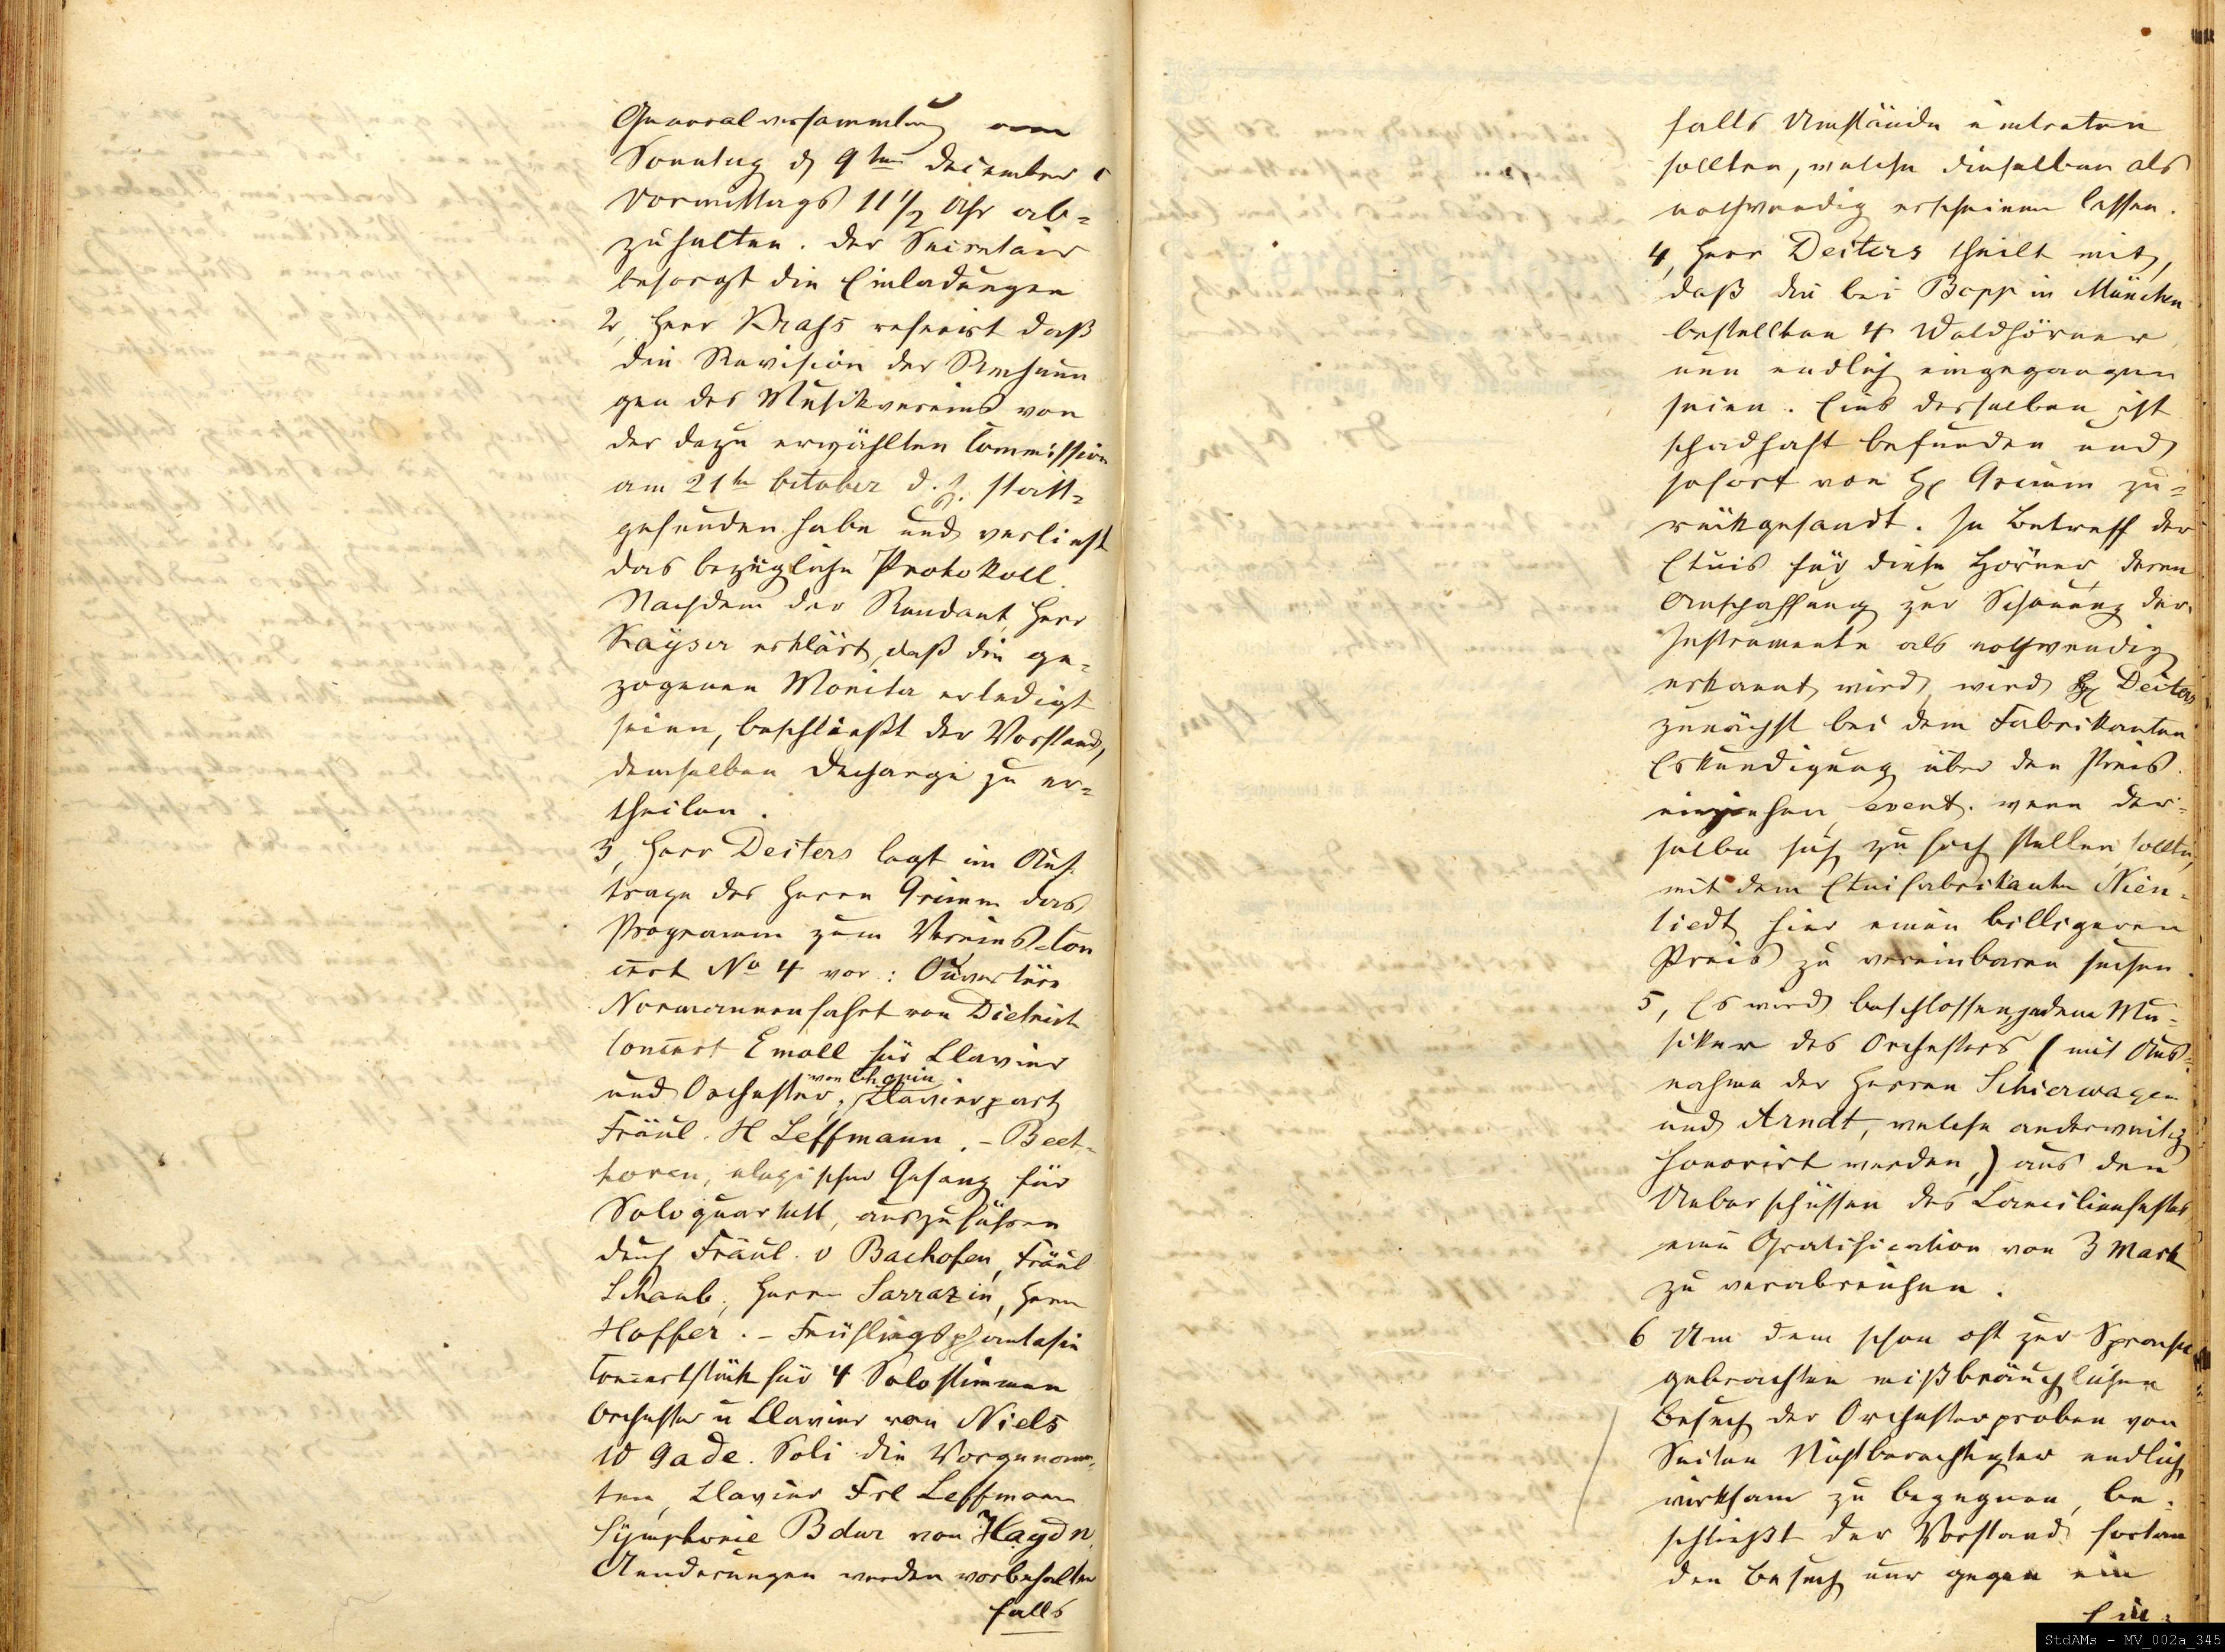 Generalversammlung am
Sonntag d 9ten December c
Vormittags 11 1/2 Uhr ab=
zuhalten. Der Secretair
besorgt die Einladungen
2, Herr Krass referirt daß
die Revision der Rechnun
gen des Musikvereins von
der dazu erwählten Commission
am 21ten October d. J. statt=
gefunden habe und verliest
das bezügliche Protokoll.
Nachdem der Rendant Herr
Kayser erklärt, daß die ge=
zogenen Monita erledigt
seien, beschließt der Vorstand,
demselben Decharge zu er=
theilen.
3, Herr Deiters legt im Auf
trage des Herrn Grimm das
Programm zum Vereins-Con
cert No 4 vor: Ouvertüre
Normannenfahrt von Dietrich
Concert Emoll für Clavier
und Orchester, von Chopin Clavierpart
Fräul. H Leffmann. - Beet=
hoven, elegischer Gesang für
Soloquartett, auszuführen
durch Fräul. v Bachofen, Fräul
Schaub, Herrn Sarrazin, Herrn
Hoffer. - Frühlingsphantasie
Concertstück für 4 Solostimmen
Orchester u Clavier von Niels
W Gade. Soli die Vorgenann=
ten, Clavier Frl Leffmann
Symphonie Bdur von Haydn.
Aenderungen werden vorbehalten
falls
falls Umstände eintreten
sollten, welche dieselben als
nothwendig erscheinen lassen.
4, Herr Deiters theilt mit,
daß die bei Bopp in München
bestellten 4 Waldhörner
nun endlich eingegangen
seien. Eins derselben ist
schadhaft befunden und
sofort von H Grimm zu=
rückgesandt. In Betreff der
Etuis für diese Hörner, deren
Anschaffung zur Schonung der
Instrumente als nothwendig
erkannt wird, wird H Deiters
zunächst bei dem Fabrikanten
Erkundigung über den Preis
einziehen, event. wenn der=
selbe sich zu hoch stellen sollte,
mit dem Etuifabrikanten Nien=
tiedt hier einen billigeren
Preis zu vereinbaren suchen.
5, Es wird beschlossen, jedem Mu=
siker des Orchesters (mit Aus=
nahme der Herren Schierwagen
und Arndt, welche anderweitig
honorirt werden,) aus den
Ueberschüssen des Caecilienfestes
eine Gratification von 3 Mark
zu verabreichen.
6 Um dem schon oft zur Sprache
gebrachten mißbräuchlichen
Besuch der Orchesterproben von
Seiten Nichtberechtigter endlich
wirksam zu begegnen, be=
schließt der Vorstand fortan
den Besuch nur gegen ein
Ein=
StdAMs - MV_002a_345